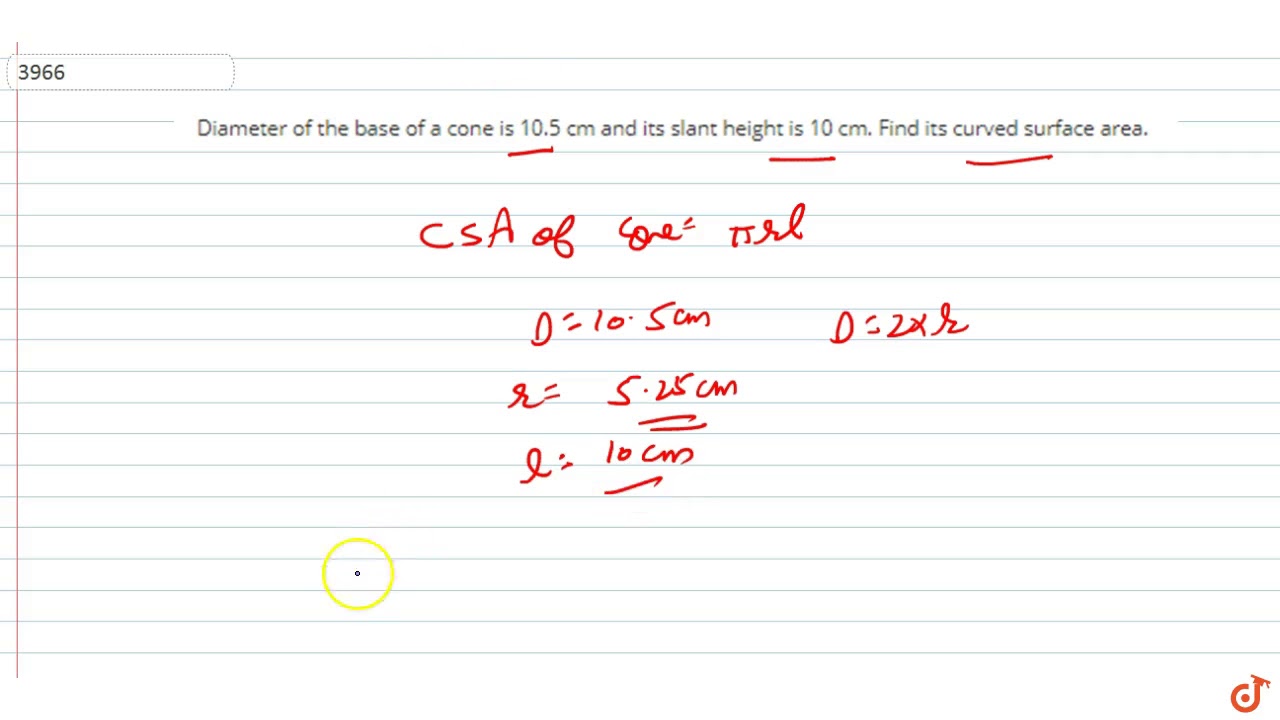 3966
Diameter of the base of a cone is 10.5 cm and its slant height is 10 cm. Find its curved surface area.
CSA of cone = πrl
D = 10.5 cm D = 2 × r
r = 5.25 cm
l = 10 cm